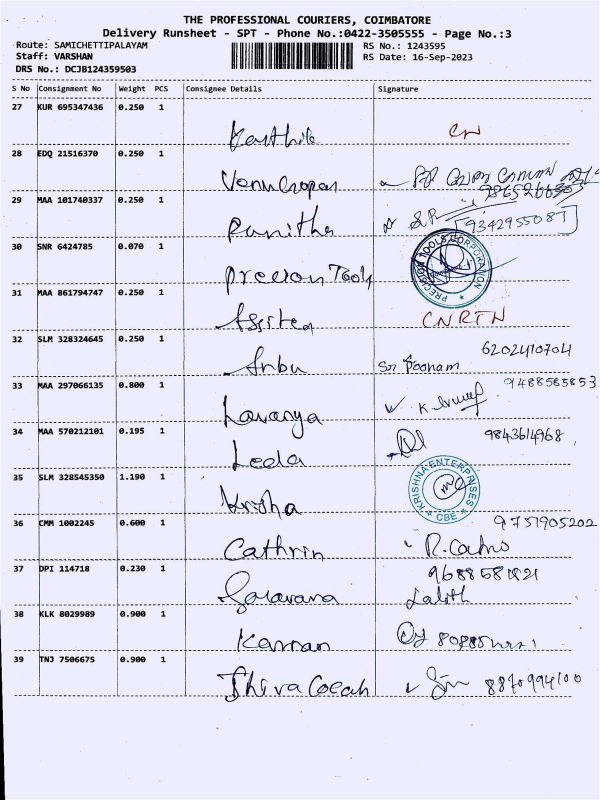 THE PROFESSIONAL COURIERS, COIMBATORE
Delivery Runsheet - SPT - Phone No.:0422-3505555 - Page No.:3
Route: SAMICHETTIPALAYAM RS No.: 1243595
Staff: VARSHAN RS Date: 16-Sep-2023
DRS No.: DCJB124359503
S No Consignment No Weight PCS Consignee Details Signature
27 KUR 695347436 0.250 1
Karthik
28 EDQ 21516370 0.250 1
Venugopal
29 MAA 101740337 0.250 1
Punitha 9342955087
30 SNR 6424785 0.070 1
Precion Tools PRECISION TOOLS CORPORATION
31 MAA 861794747 0.250 1
CNRTN
32 SLM 328324645 0.250 1
6202410704
Anbu Sri Poonam
33 MAA 297066135 0.800 1
9488565853
Lavanya
34 MAA 570212101 0.195 1
9843614968
Leela
35 SLM 328545350 1.190 1
Krisha KRISHNA ENTERPRISES CBE
36 CMM 1002245 0.600 1
9751905202
Cathrin
37 DPI 114718 0.230 1
Saravana Lalith
38 KLK 8029989 0.900 1
Kannan
39 TNJ 7506675 0.900 1
8870994100